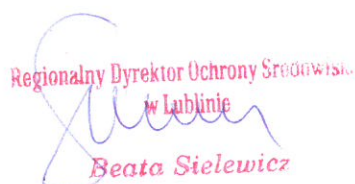 Regionalny Dyrektor Ochrony Środowiska
w Lublinie
Beata Sielewicz